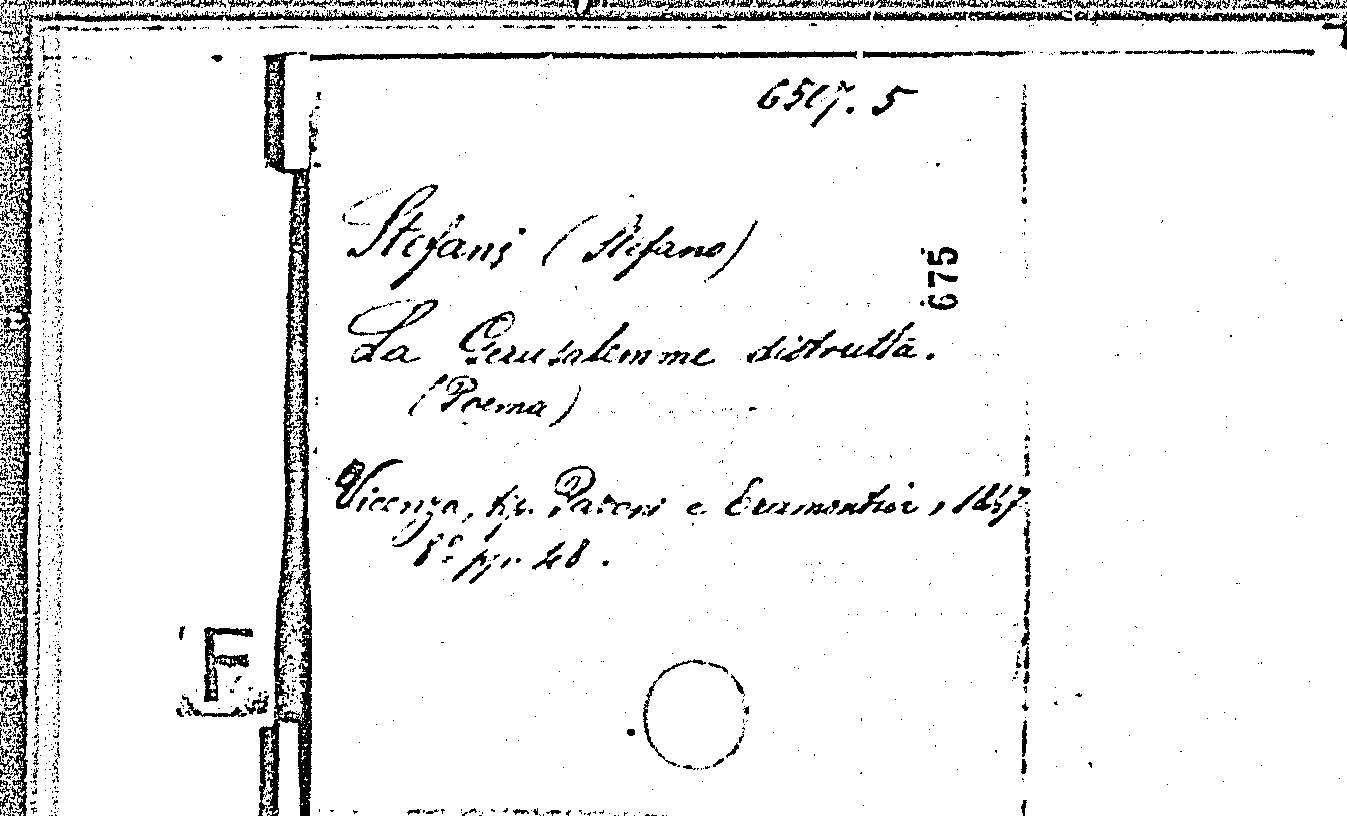 6507. 5
Stefani (Stefano)
675
La Gerusalemme distrutta.
(Poema)
Vicenza, tip. Paroni e Eramontin, 1847
8° pp. 48.
F